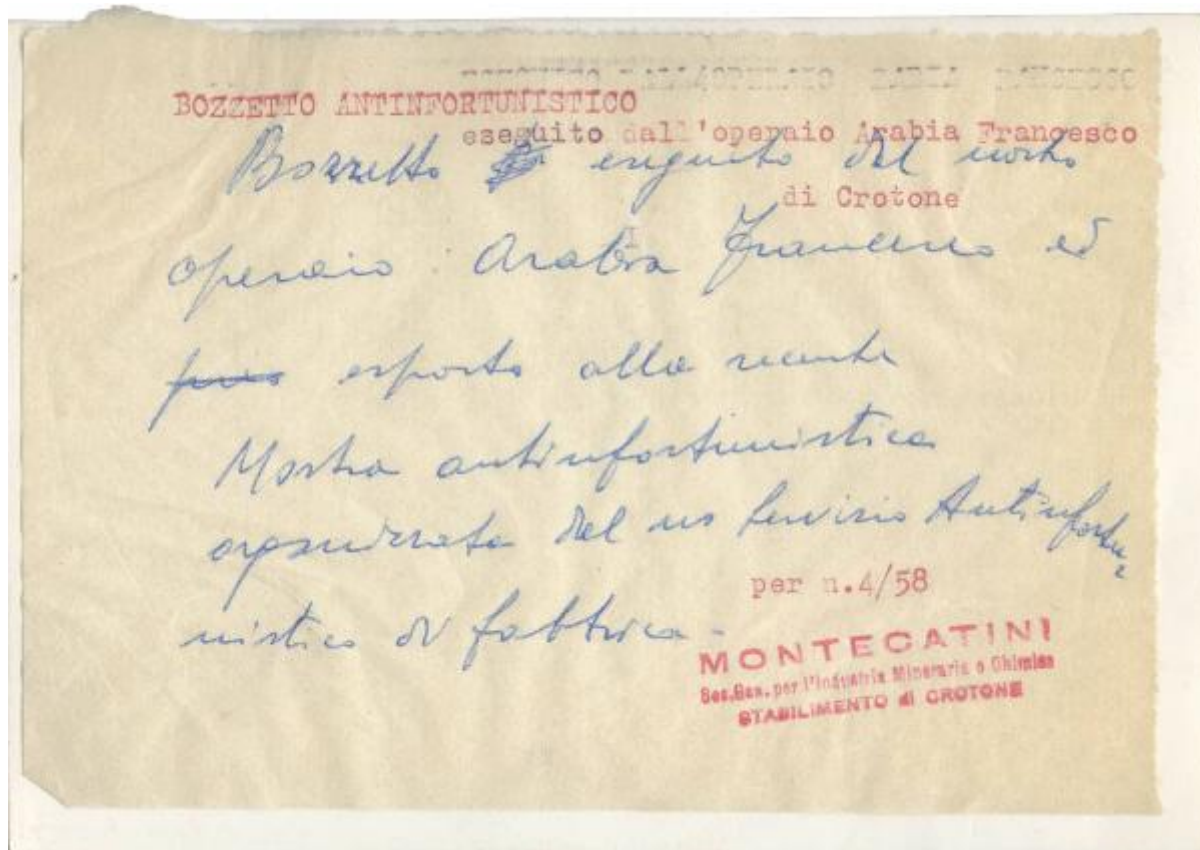 BOZZETTO ANTINFORTUNISTICO
eseguito dall'operaio Arabia Francesco
di Crotone
Bozzetto eseguito dal nostro
operaio Arabia Francesco ed
esposto alla recente
Mostra antinfortunistica
organizzata dal ns Servizio Antinfortu-
nistico di fabbrica -
per n.4/58
MONTECATINI
Soc.Gen. per l'Industria Mineraria e Chimica
STABILIMENTO di CROTONE